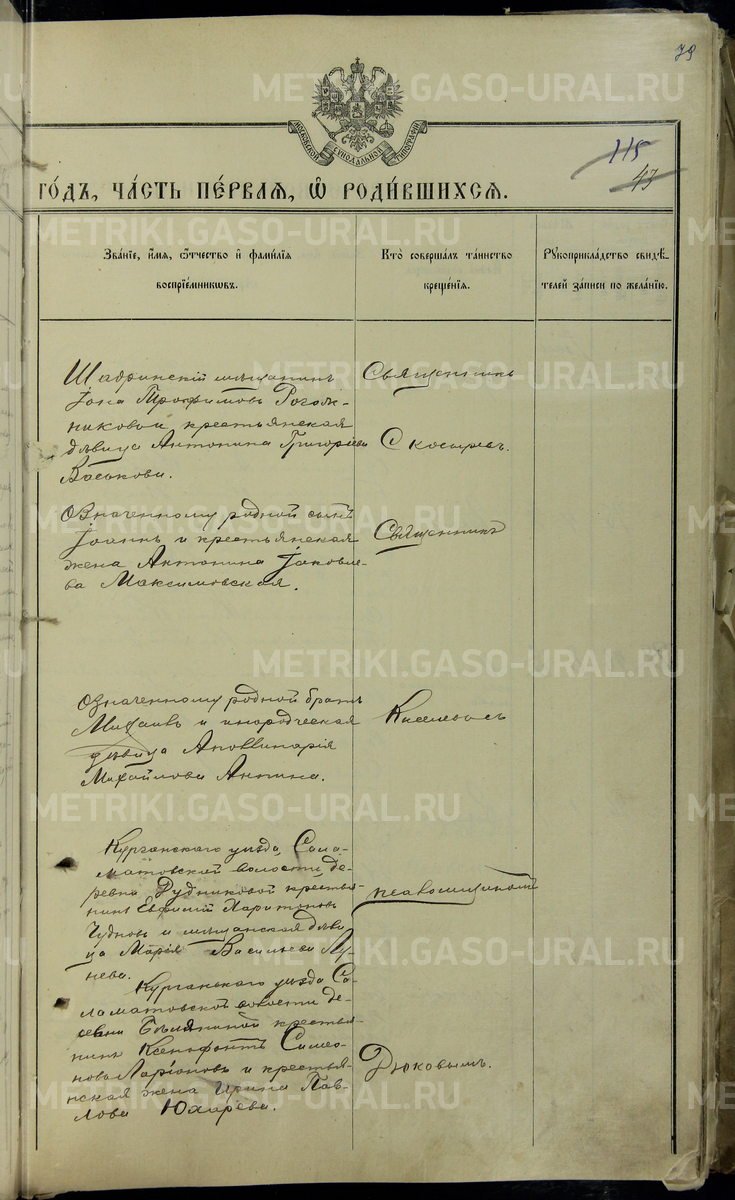 79
МОСКОВСКОЙ СѴНОДАЛЬНОЙ ТИПОГРАФІИ
115
43
ГО́ДЪ, ЧА́СТЬ ПЕ́РВАѦ, Ѡ҆ РОДИ́ВШИХСѦ.
Зва́нїе, и҆́мѧ, ѻ҆́тчество и҆ фами́лїѧ
воспрїе́мникѡвъ.
Кто̀ соверша́лъ та́инство
креще́нїѧ.
Рꙋкоприкла́дство свидѣ́-
телей за́писи по жела́нїю.
Шадринскій мѣщанинъ
Іона Трофимовъ Рогож-
никовъ и крестьянская
дѣвица Антонина Григоріева
Васькова.
Священникъ
Скосыревъ.
Означенному родной сынъ
Іоаннъ и крестьянская
жена Антонина Іаковле-
ва Максимовская.
Священникъ
Означенному родной братъ
Михаилъ и инородческая
дѣвица Аполлинарія
Михайлова Антина.
Киселевъ съ
Курганскаго уѣзда, Сала-
матовской волости, де-
ревни Рудниковой крестья-
нинъ Евфимій Харитоновъ
Чудновъ и мѣщанская дѣви-
ца Марія Васильева Лу-
нева.
псаломщикомъ
Курганскаго уѣзда, Са-
ламатовской волости де-
ревни крестья-
нинъ Ксенофонтъ Симео-
новъ Ларіоновъ и крестья-
нская жена Ирина Пав-
лова Юхарева.
Дюковымъ.
METRIKI.GASO-URAL.RU